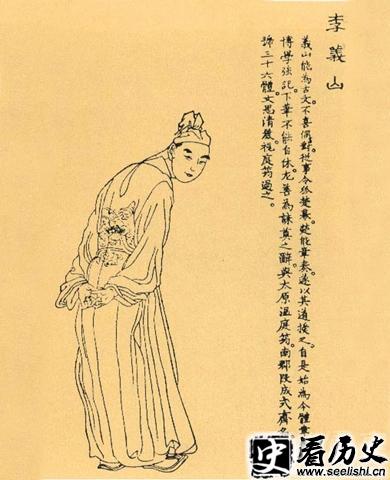 李義山
義山能為古文。不喜偶對。從事令狐楚幕。楚能章奏。遂以其道授之。自是始為今體章
博學強記。下筆不能自休。尤善為誄奠之辭。與太原溫庭筠。南郡段成式齊名
號三十六體。文思清麗。視庭筠過之。
史看历史
www.seelishi.cn